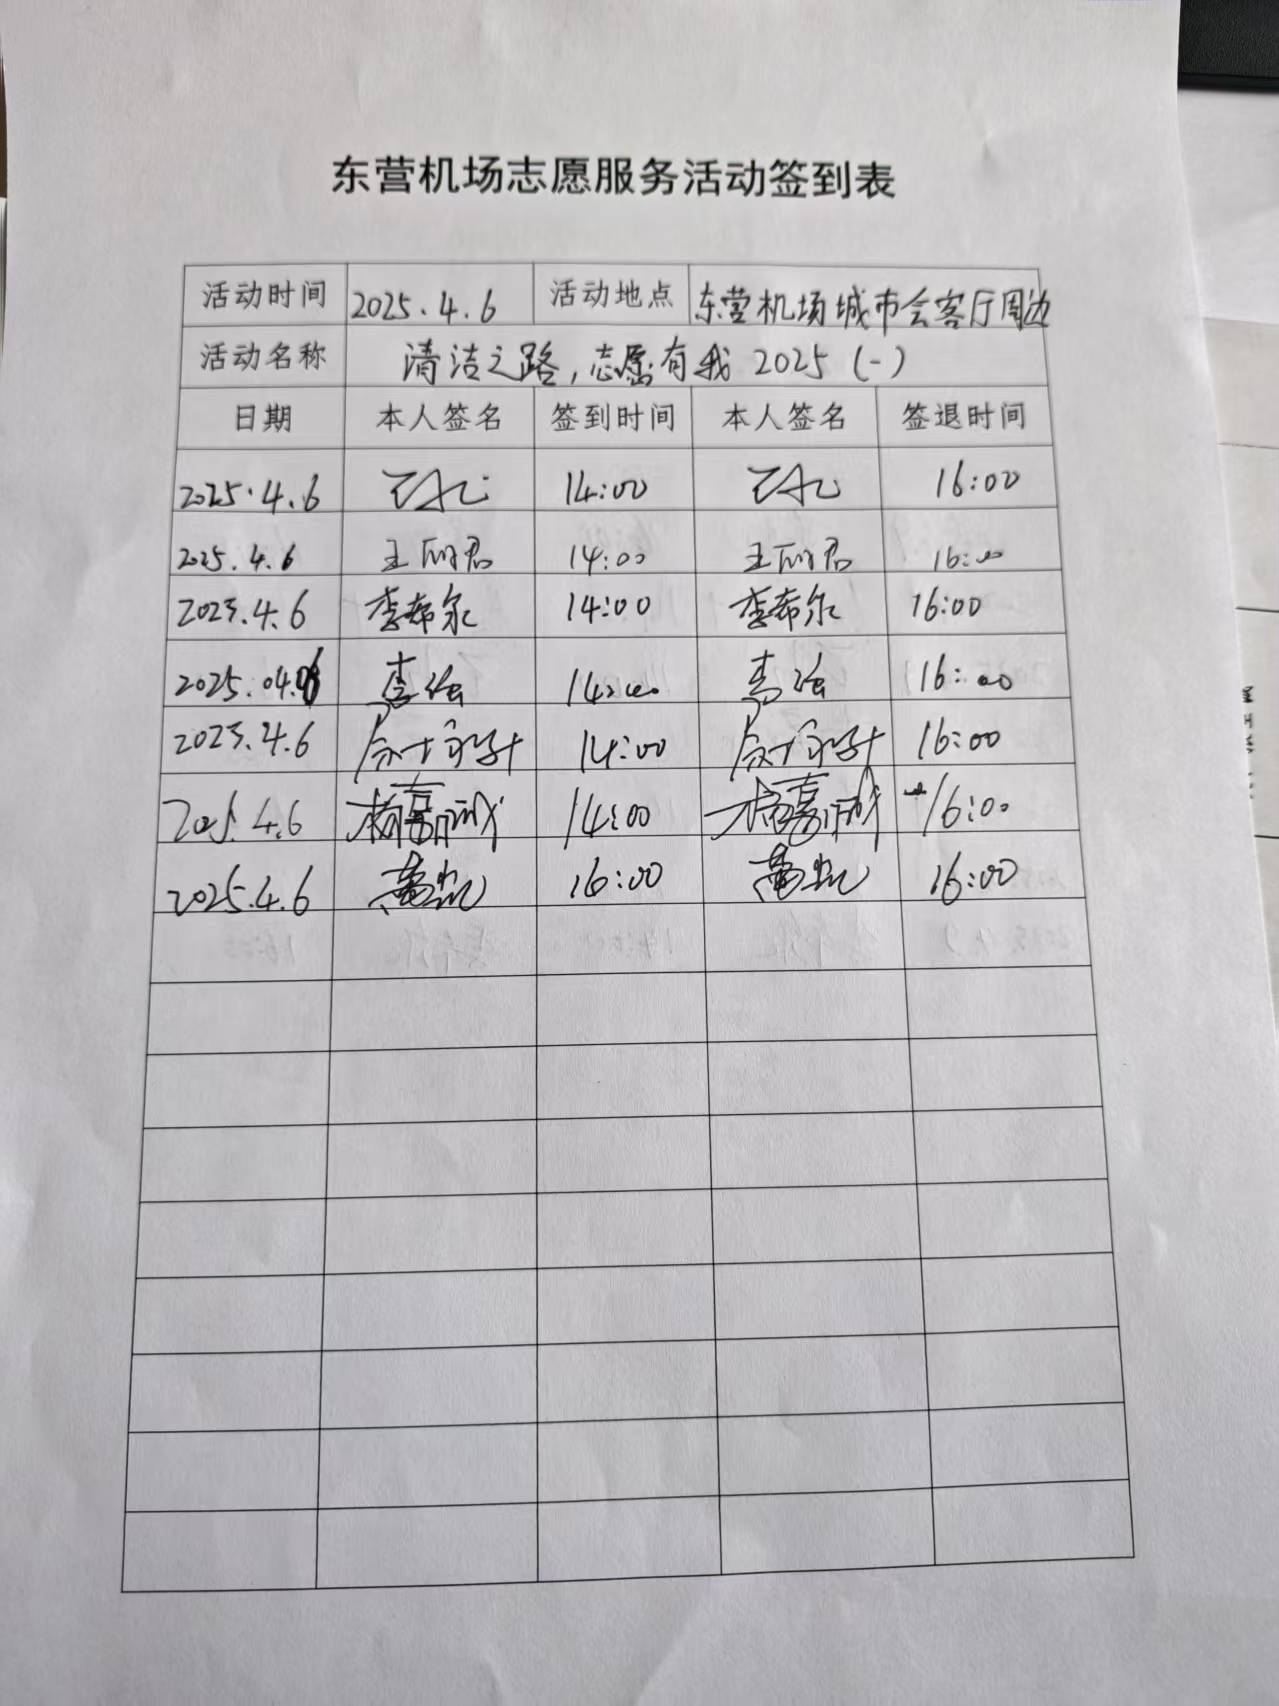 东营机场志愿服务活动签到表
活动时间 2025.4.6 活动地点 东营机场城市会客厅周边
活动名称 清洁之路,志愿有我 2025 (一)
日期 本人签名 签到时间 本人签名 签退时间
2025.4.6 14:00 16:00
2025.4.6 王丽君 14:00 王丽君 16:00
2025.4.6 李希尔 14:00 李希尔 16:00
2025.04.06 14:00 16:00
2025.4.6 14:00 16:00
2025.4.6 杨嘉诚 14:00 杨嘉诚 16:00
2025.4.6 黄凯 16:00 黄凯 16:00